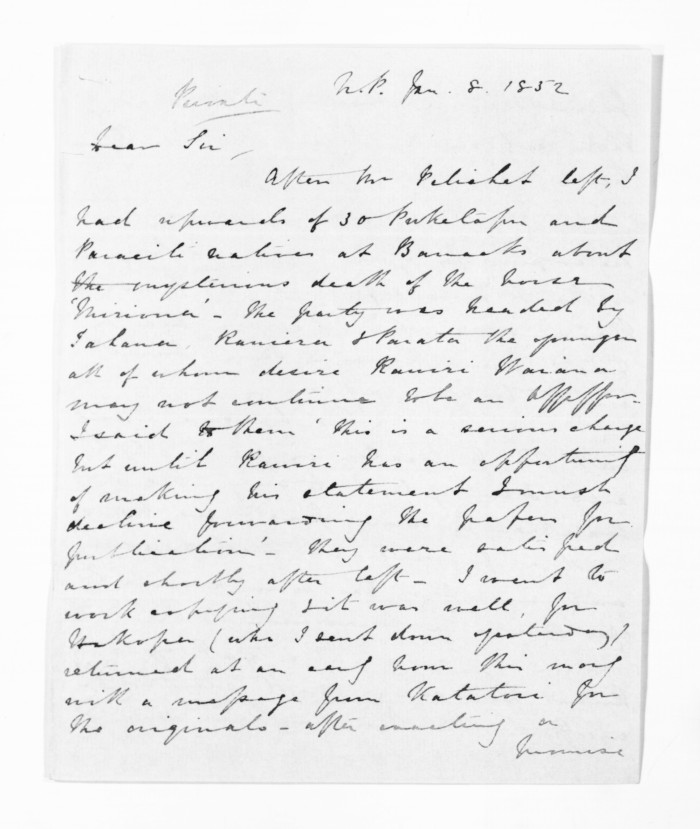 Private
N.P. Jan. 8. 1852
Dear Sir,
After Mr Pelichet left, I
had upwards of 30 Puketapu and
natives at Barracks about
the mysterious death of the horse
- the party was headed by
Tahana, Raniera & Parata the younger
all of whom desire
may not continue to be an Assessor.
I said to them 'this is a serious charge
but until has an opportunity
of making his statement I must
decline forwarding the papers for
publication' - they were satisfied
and shortly after left - I went to
work copying & it was well, for
(who I sent down yesterday)
returned at an early hour this morng
with a message from Katatori for
the originals - after exacting a
promise